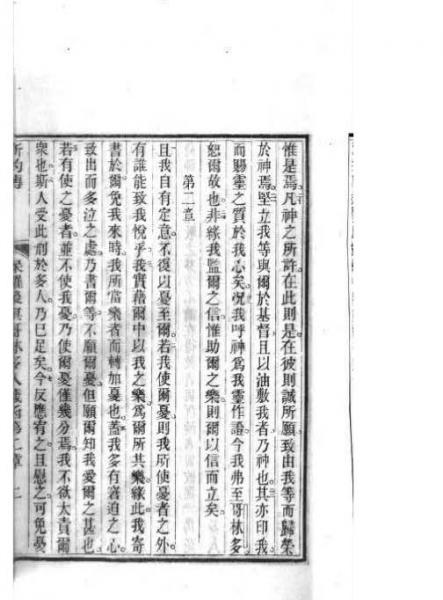 惟是焉凡神之所許在此則是在彼則誠所願致由我等而歸榮
於神焉堅立我等與爾於基督且以油敷我者乃神也其亦印我
而賜靈之質於我心矣況我呼神爲我靈作證今我弗至哥林多
恕爾故也非緣我監爾之信惟助爾之樂則爾以信而立矣
第二章
且我自有定意不復以憂至爾若我使爾憂則我所使憂者之外
有誰能致我悅乎我實藉爾中以我之樂爲爾所其樂緣此我寄
書於爾免我來時我所當樂者而轉加憂也蓋我多有窘迫之心
致出而多泣之處乃書爾等不願爾憂但願爾知我愛爾之甚也
若有使之憂者並不使我憂乃使爾憂僅幾分焉我不欲太責爾
衆也斯人受此削於多人乃已足矣今反應宥之且慰之可免憂
新約傳 與哥林多人 第二章 二